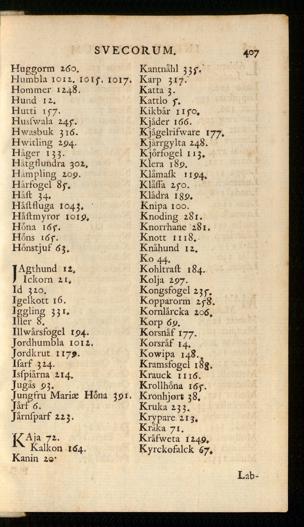 SVECORUM. 407
Huggorm 260.
Humbla 1012. 1015. 1017.
Hommer 1248.
Hund 12.
Hutti 157.
Husſwala 245.
Hwasbuk 316.
Hwitling 294.
Häger 133.
Hätgſlundra 302.
Hämpling 209.
Härfogel 85.
Häſt 34.
Häſtfluga 1043.
Häſtmyror 1019.
Höna 165.
Höns 165.
Hönstjuf 63.
JAgthund 12.
Ickorn 21.
Id 320.
Igelkott 16.
Iggling 331.
Iller 8.
Illwårsfogel 194.
Jordhumbla 1012.
Jordkrut 1179.
Iſarf 324.
Iſſpiärna 214.
Jugås 93.
Jungfru Mariæ Höna 391.
Järf 6.
Järnſparf 223.
KAja 72.
Kalkon 164.
Kanin 20.
Kantnåhl 335.
Karp 317.
Katta 3.
Kattlo 5.
Kikbär 1150.
Kjäder 166.
Kjägelrifware 177.
Kjärrgylta 248.
Kjörfogel 113.
Klera 189.
Klåmaſk 1194.
Klåſſa 250.
Klädra 189.
Knipa 100.
Knoding 281.
Knorrhane 281.
Knott 1118.
Knähund 12.
Ko 44.
Kohltraſt 184.
Kolja 297.
Kongsfogel 235.
Kopparorm 258.
Kornlärcka 206.
Korp 69.
Korsnäf 177.
Korsräf 14.
Kowipa 148.
Kramsfogel 188.
Krauck 1116.
Krollhöna 165.
Kronhjort 38.
Kruka 233.
Krypare 213.
Kråka 71.
Kräfweta 1249.
Kyrckofalck 67.
Lab-